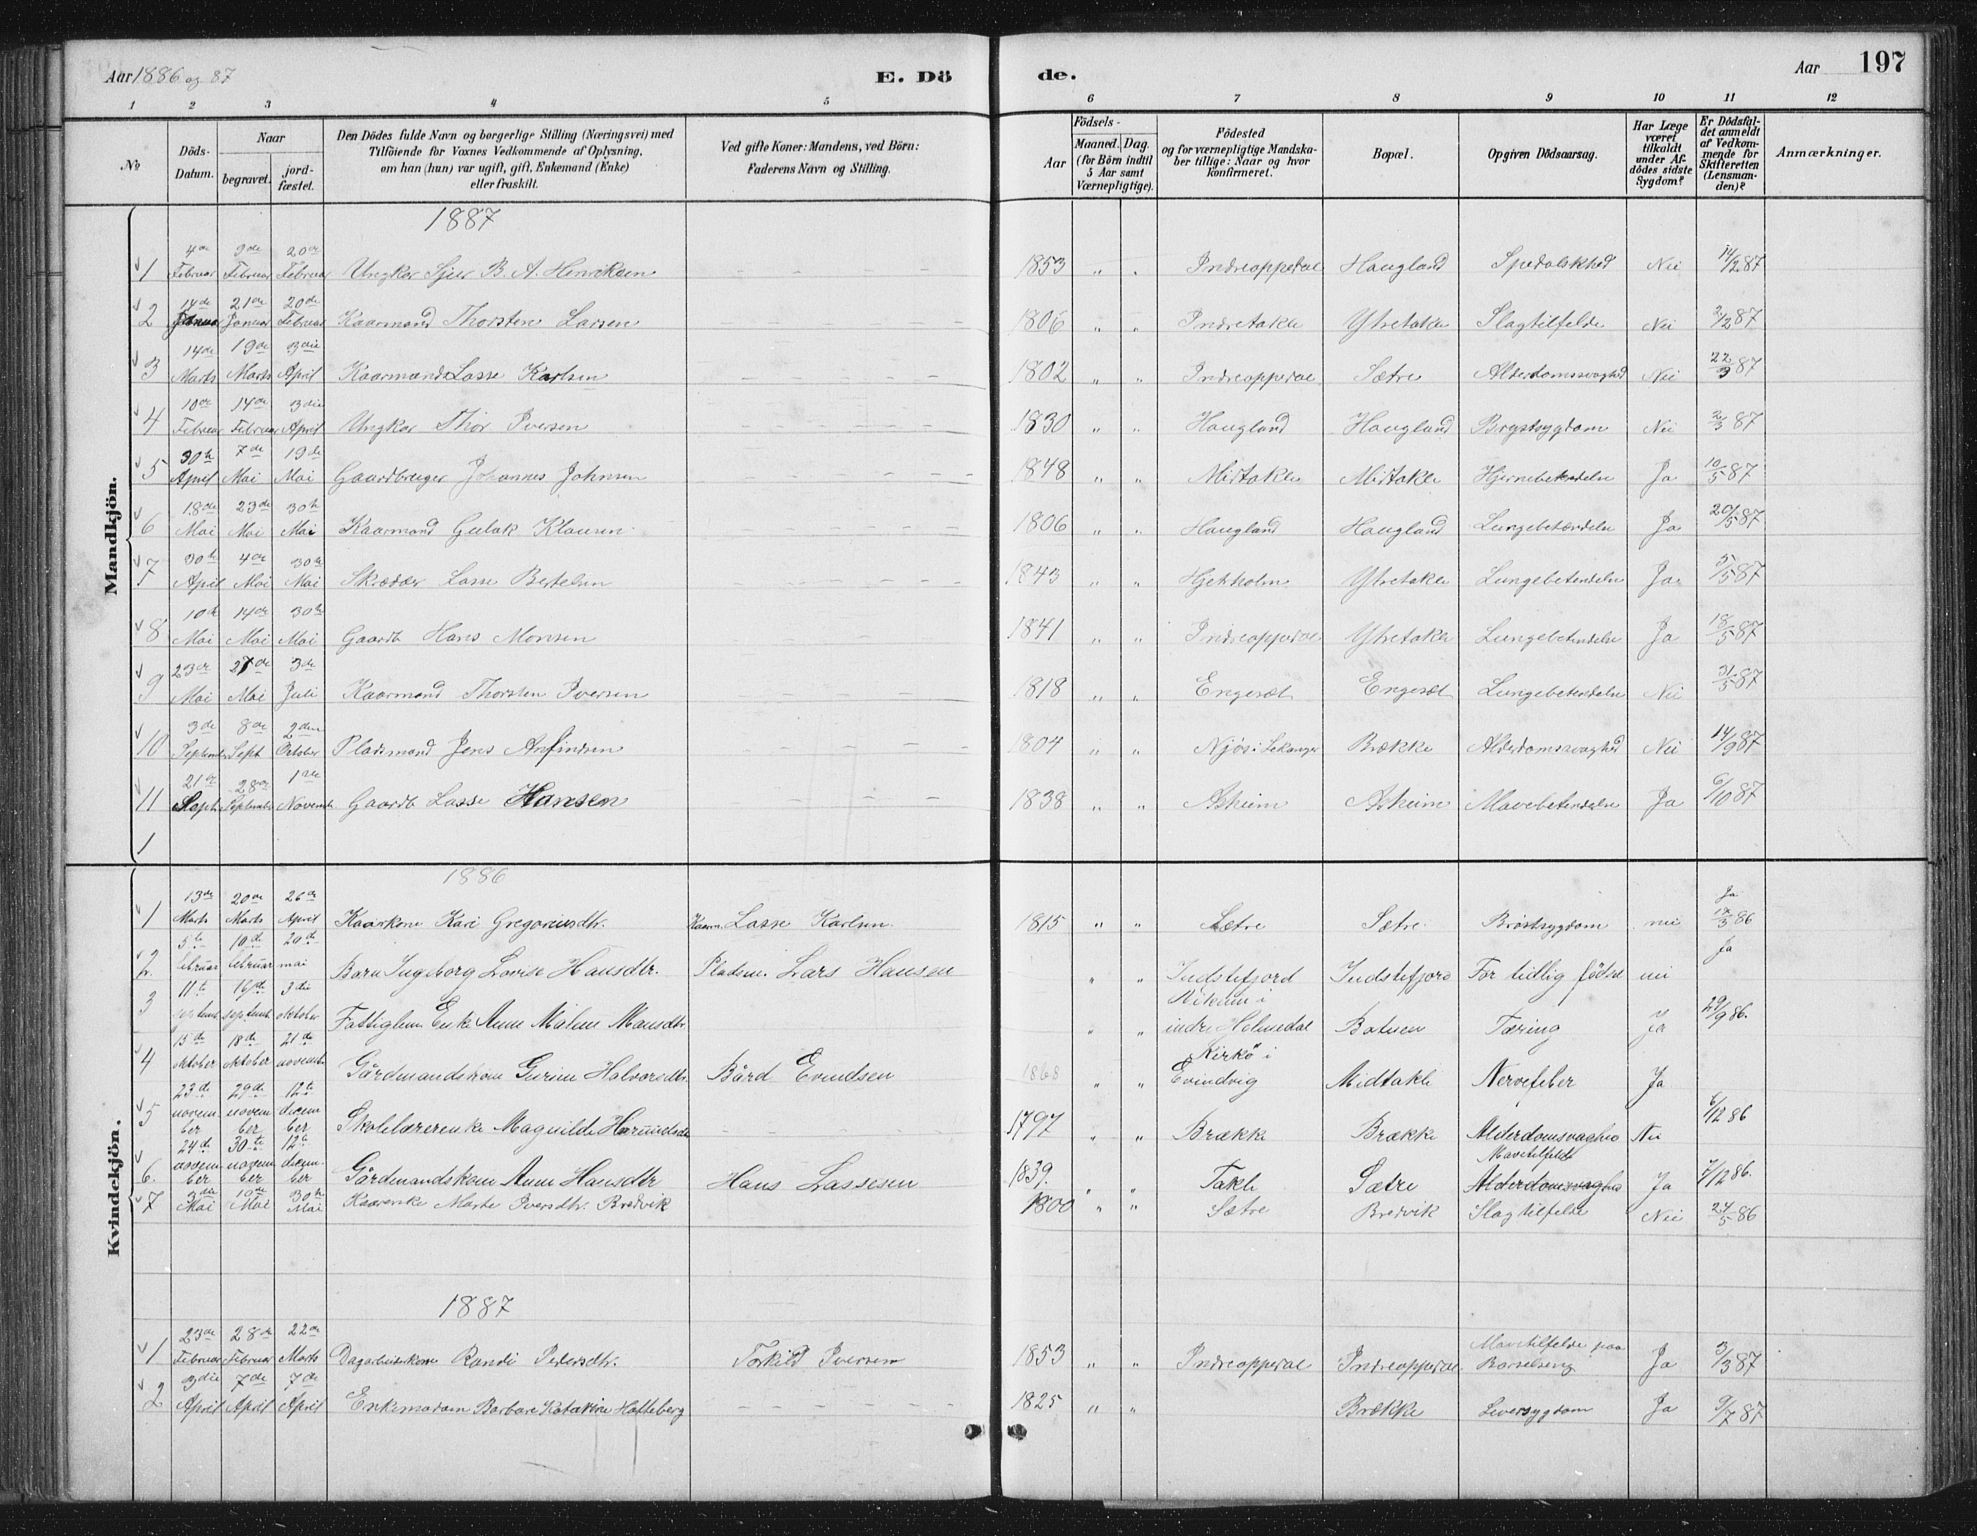 Aar 1886 og 87 E. Dö de. Aar 197
1 2 3 4 5 6 7 8 9 10 11 12
No
Döds-Datum.
Naar begravet. jordfæstet.
Den Dödes fulde Navn og borgerlige Stilling (Næringsvei) med
Tilföiende for Voxnes Vedkommende af Oplysning,
om han (hun) var ugift, gift, Enkemand (Enke)
eller fraskilt.
Ved gifte Koner: Mandens, ved Börn:
Faderens Navn og Stilling.
Födsels-
Aar Maaned. Dag.
(for Börn indtil 5 Aar samt Værnepligtige).
Födested
og for værnepligtige Mandskaber tillige: Naar og hvor konfirmeret.
Bopæl.
Opgiven Dödsaarsag.
Har Læge været tilkaldt under Afdödes sidste Sygdom?
Er Dödsfaldet anmeldt af Vedkommende for Skifteretten (Lensmanden)?
Anmærkninger.
Mandkjön.
1887
1 4de Februar 9de Februar 20de Februar Ungkar B. A. Henriksen 1853 " " Indreoppedal Haugland Spedalskhed Nei 14/2 87
2 14de Januar 21de Januar 20de Februar Kaarmand Thorsten Larsen 1806 " " Indretakle Ytretakle Slagtilfelde Nei 2/2 87
3 14de Marts 19de Marts 3die April Kaarmand Lasse Karlsen 1802 " " Indreoppedal Sætre Alderdomssvaghed Nei 22/3 87
4 10de Februar 14de Februar 3die April Ungkar Thor Iversen 1830 " " Haugland Haugland Brystsygdom Nei 2/3 87
5 30te April 7de Mai 19de Mai Gaardbruger Johannes Johnsen 1848 " " Midtakle Midtakle Hjernebetendelse Ja 10/5 87
6 18de Mai 23de Mai 30te Mai Kaarmand Gulak Klausen 1806 " " Haugland Haugland Lungebetændelse Ja 20/5 87
7 30te April 4de Mai 30te Mai Skrædder Lasse Bertelsen 1843 " " Hjekholm Ytretakle Lungebetendelse Ja 5/5 87
8 10de Mai 14de Mai 30te Mai Gaardb Hans Monsen 1841 " " Indreoppedal Ytretakle Lungebetendelse Ja 18/5 87
9 23de Mai 27de Mai 3de Juli Kaarmand Thorsten Iversen 1818 " " Engesæt Engesæt Lungebetendelse Nei 31/5 87
10 3de September 8de Sept 2den October Pladsmand Jens Anfindsen 1804 " " Njøs i Lekanger Brække Alderdomssvaghed Nei 14/9 87
11 21de Sept. 28de September 1ste November Gaardb Lasse Hansen 1838 " " Asheim Asheim Mavebetendelse Ja 6/10 87
1
Kvindekjön.
1886
1 13de Marts 20de Marts 26de April Kaarkone Kari Gregoriusdtr. Kaarm. Lasse Karlsen 1815 " " Sætre Sætre Brøstsygdom nei Ja 17/3 86
2. 5te februar 10de februar 20de mai Barn Ingeborg Lovise Hansdtr. Pladsm. Lars Hansen " " Indstefjord Indstefjord For tidlig födsel nei Ja
3 11te septemb. 16de septemb. 3die oktober Fattiglem Enke Anne Malene Monsdtr. " " i indre Holmedal Botnen Tæring Ja 29/9 86.
4 15de oktober 18de oktober 21de november Gårdmandskone Gurine Halvorsdtr. Bård Evindsen 1868 " " Kirkö i Evindvig Midtakle Nervefeber Ja
5 23de november 29de november 12te december Skolelærerenke Magnilde 1797 " " Brække Brække Alderdomsvaghed Nei 6/12 86
6. 24de november 30te november 12te december Gårdmandskone Anne Hansdtr Hans Lassesen 1839. " " Takle Sætre Mavetilfelde Alderdomsvaghed Ja 7/12 86.
7 3de Mai 10de Mai 30te Mai Kaarenke Marte Iversdtr. Bredvik 1800 " " Sætre Bredvik Slagtilfelde Nei 24/5 86
1887
1 23de Februar 28de Februar 22de Marts Dagarbeiderkone Randi Pedersdtr. Torkild Iversen 1853 " " Indreoppedal Indreoppedal Mavetilfelde paa Barselseng Ja 3/3 87
2 3die April 7de April 7de April Enkemadam Barbara Katakrine Hofteberg 1825 " " Brække Leversygdom Ja 9/7 87